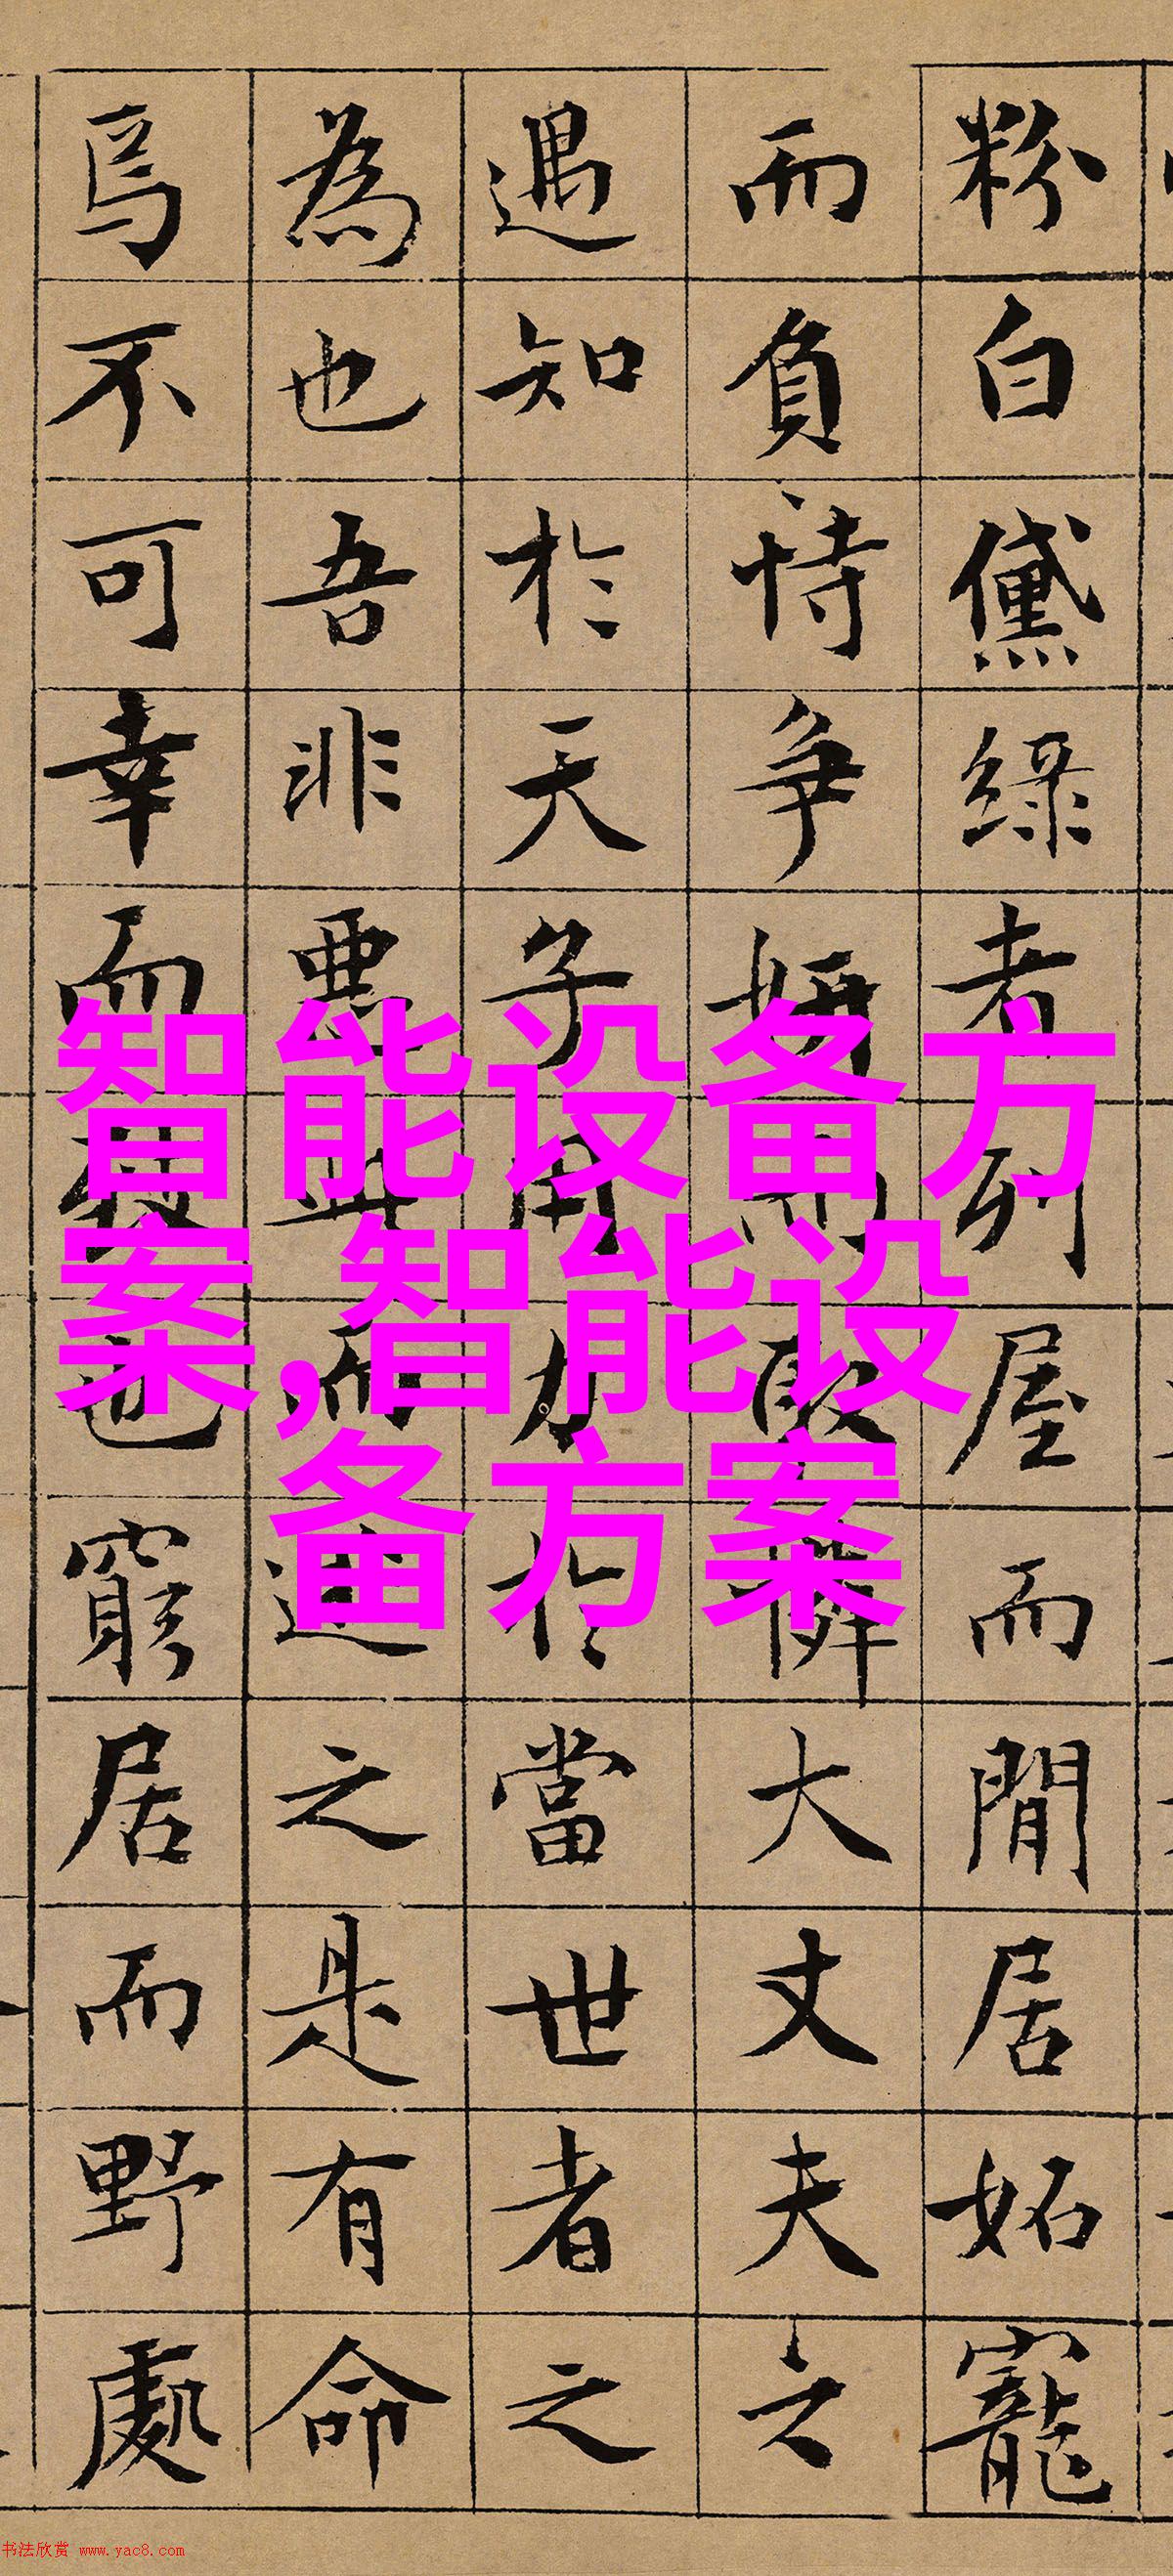 粉白黛綠者列屋而閒居妬寵
而負恃爭妍而取憐大丈夫之
遇知於天子用力於當世者之
為也吾非惡此而逃之是有命
焉不可幸而致也窮居而野處
智能设备方
案,智能设
备方案
书法欣赏 www.yac8.com